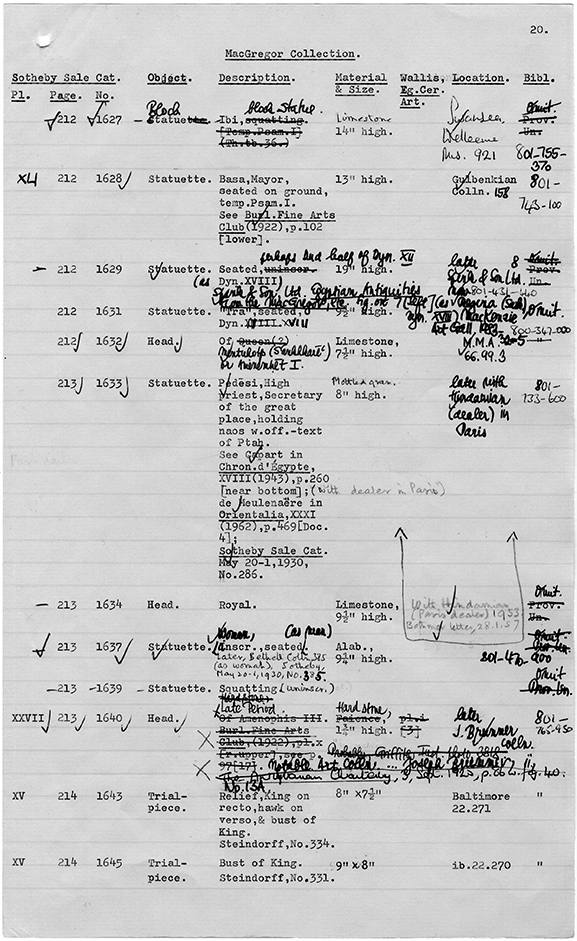 20.
MacGregor Collection.
Sotheby Sale Cat. Object. Description. Material Wallis, Location. Bibl.
Pl. Page. No. & Size. Eg.Cer. Art.
Block block statue Omit
212 1627 Statuette Ibi, squatting. Limestone Swansea, Prov.
[Temp.Psam.I] 14" high. Wellcome Un.
(Th.tb.36.) Mus. 921 801-755-
370
XLI 212 1628 Statuette. Basa, Mayor, 13" high. Gulbenkian 801-
seated on ground, Colln. 158 743-100
temp.Psam.I.
See Burl.Fine Arts
Club(1922),p.102
[lower].
perhaps 2nd half of Dyn. XII
212 1629 Statuette. Seated, uninscr. 19" high. later 8 Omit.
(as Dyn.XVIII) Spink & Son Ltd. Prov.
Spink & Son Ltd. Egyptian Antiquities 801-431-440 Un.
from the MacGregor, etc. fig. on 7 [left] (as Nigeria
212 1631 Statuette. "Tra",seated, 9½" high. Omit.
Dyn.XVIII. Art Gall. 800-347-000
212 1632 Head. Of Queen(?) Limestone, M.M.A. "
Mentuhotp (Sankhkare) 7¾" high. 66.99.3
or Amenemhet I.
213 1633 Statuette. Pedesi,High Mottled gran. later with 801-
Priest,Secretary 8" high. Hindamian 733-600
of the great (dealer) in
place,holding Paris
naos w.off.-text
of Ptah.
See Capart in
Chron.d'Égypte,
XVIII(1943),p.260
[near bottom]; (with dealer in Paris)
de Meulenaere in
Orientalia,XXXI
(1962),p.469[Doc.
4];
Sotheby Sale Cat.
May 20-1,1930,
No.286.
213 1634 Head. Royal. Limestone, With Hindamian Omit.
9½" high. (Paris dealer) 1953 Prov.
Bothmer letter, 28.1.57 Un.
Woman, (as man) Omit.
213 1637 Statuette. Uninscr.,seated. Alab.,
Later, Bethell Colln. 385 9¼" high. 801-470-900
(as woman). Sotheby,
May 20-1, 1930, No. 385.
Omit
213 1639 Statuette. Squatting.(Uninscr.) Prov.Un.
Hardstone,
(late Period. Hard stone,
XXVII 213 1640 Head. Of Amenophis III. Faience, pl.i later 801-
Burl.Fine Arts 1¾" high. [3] J. Brunner 765-950
Club,(1922),pl.x Colln.
[r.upper],see p.
27[17]. Notable Art Colln. ... Joseph Brunner,
No.13A
XV 214 1643 Trial- Relief,King on 8" x7½" Baltimore "
piece. recto,hawk on 22.271
verso,& bust of
King.
Steindorff,No.334.
XV 214 1645 Trial- Bust of King. 9" x 8" ib.22.270 "
piece. Steindorff,No.331.